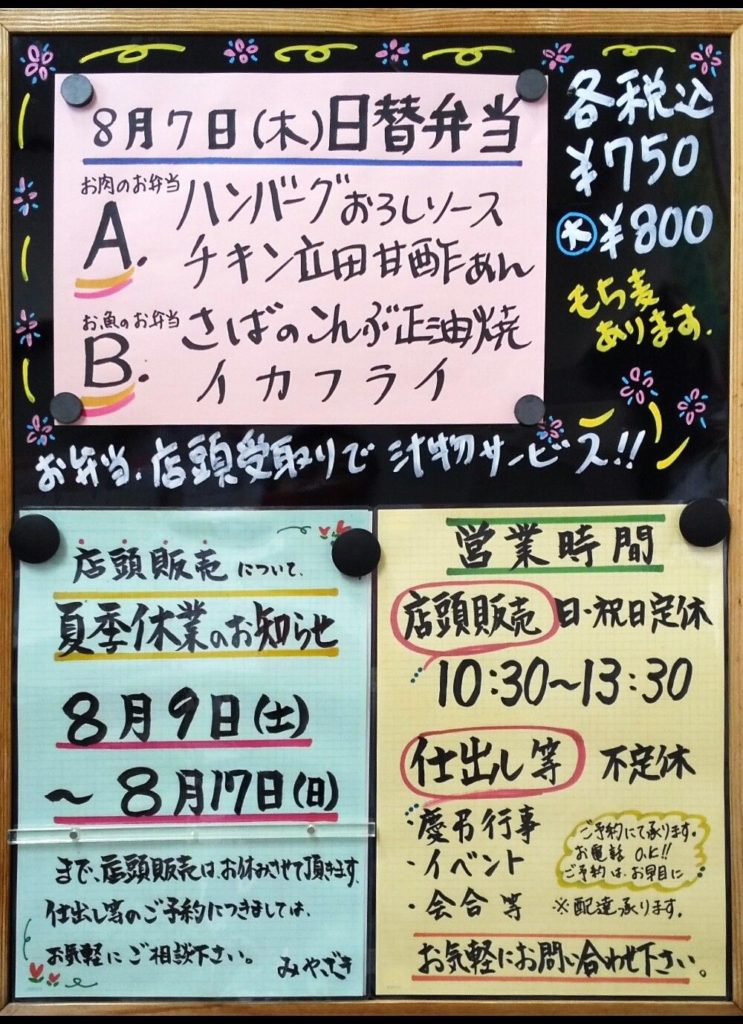 8月7日(木)日替弁当
お肉のお弁当
A. ハンバーグおろしソース
チキン立田甘酢あん
お魚のお弁当
B. さばのこんぶ正油焼
イカフライ
各税込
¥750
大 ¥800
もち麦
あります.
お弁当、店頭受取りで 汁物サービス!!
店頭販売 について、
夏季休業のお知らせ
8月9日(土)
〜8月17日(日)
まで、店頭販売は、お休みさせて頂きます.
仕出し等のご予約につきましては、
お気軽にご相談下さい。 みやざき
営業時間
店頭販売 日・祝日定休
10:30〜13:30
仕出し等 不定休
・慶弔行事
・イベント
・会合等
ご予約にて承ります.
お電話 O.K!!
ご予約は、お早目に
※配達承ります.
お気軽にお問い合わせ下さい。